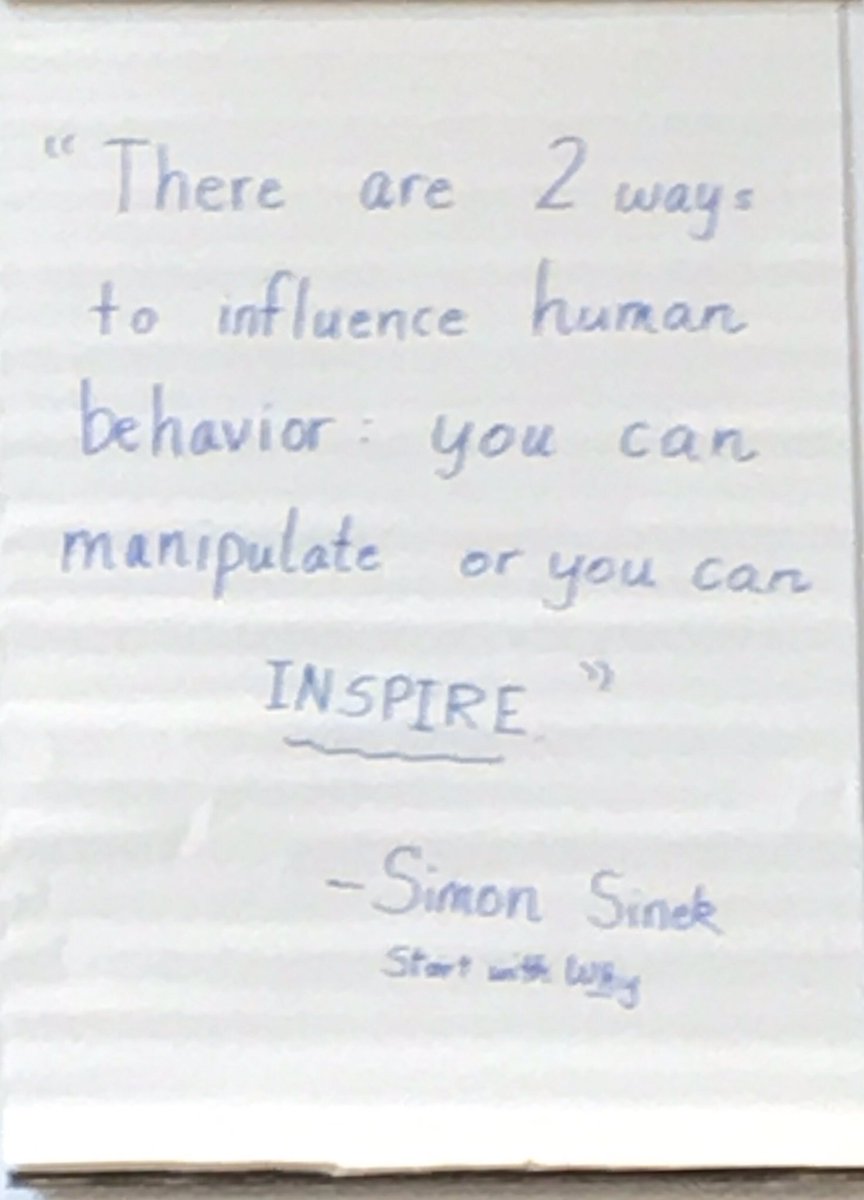 “There are 2 ways
to influence human
behavior: you can
manipulate or you can
INSPIRE.”
- Simon Sinek
Start with Why